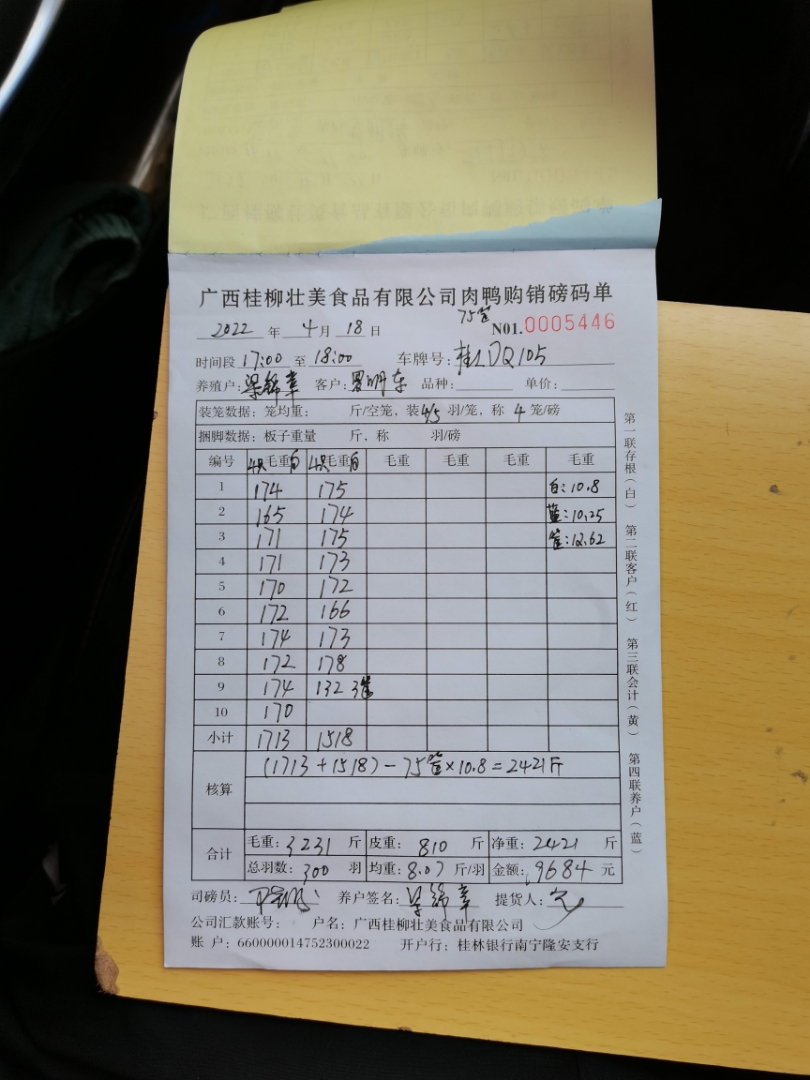 广西桂柳壮美食品有限公司肉鸭购销磅码单
75笼
2022 年 4 月 18 日 N01.0005446
时间段 17:00 至 18:00 车牌号: 桂LDQ105
养殖户: 梁锦章 客户: 罗明东 品种: 单价:
装笼数据: 笼均重: 斤/空笼, 装4/5 羽/笼, 称 4 笼/磅
捆脚数据: 板子重量 斤, 称 羽/磅
编号 4只毛重白 4只毛重白 毛重 毛重 毛重 毛重
1 174 175 白:10.8
2 165 174 蓝:10.25
3 171 175 :12.62
4 171 173
5 170 172
6 172 166
7 174 173
8 172 178
9 174 132 3笼
10 170
小计 1713 1518
核算 (1713+1518)-75笼×10.8=2421斤
合计 毛重: 3231 斤 皮重: 810 斤 净重: 2421 斤
总羽数: 300 羽 均重: 8.07 斤/羽 金额: 9684 元
司磅员: 养户签名: 梁锦章 提货人:
公司汇款账号: 户名: 广西桂柳壮美食品有限公司
账 户: 660000014752300022 开户行: 桂林银行南宁隆安支行
第一联存根(白) 第二联客户(红) 第三联会计(黄) 第四联养户(蓝)